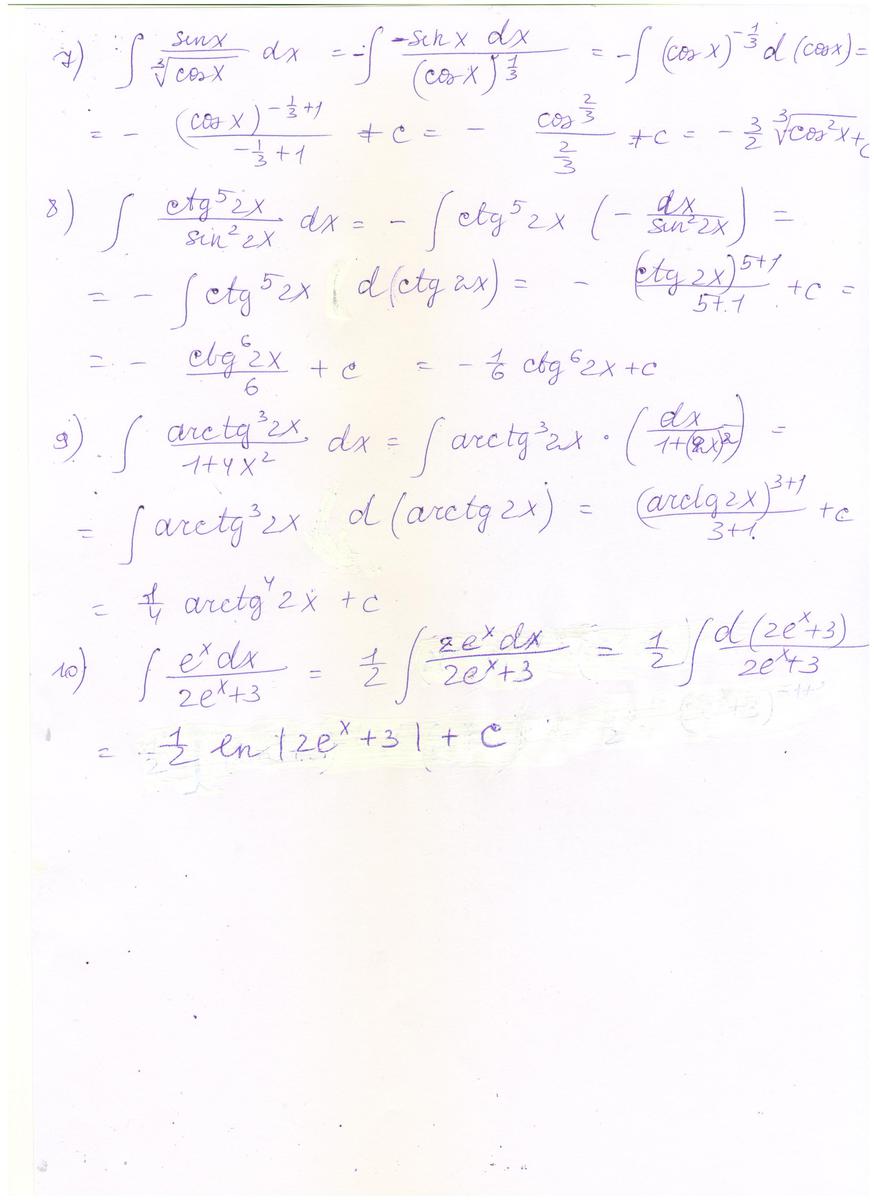 7) ∫ sinx / ∛cosx dx = -∫ -sin x dx / (cos x)^{1/3} = -∫ (cos x)^{-1/3} d (cos x) =
= - (cos x)^{-1/3+1} / (-1/3+1) + c = - cos^{2/3} / (2/3) + c = - 3/2 ∛cos²x + c
8) ∫ ctg⁵2x / sin²2x dx = - ∫ ctg⁵2x (- dx / sin²2x) =
= - ∫ ctg⁵2x d(ctg 2x) = - (ctg 2x)^{5+1} / 5+1 + c =
= - ctg⁶2x / 6 + c = - 1/6 ctg⁶2x + c
9) ∫ arctg³2x / 1+4x² dx = ∫ arctg³2x · (dx / 1+(2x)²) =
= ∫ arctg³2x d (arctg 2x) = (arctg 2x)^{3+1} / 3+1 + c
= 1/4 arctg⁴2x + c
10) ∫ eˣdx / 2eˣ+3 = 1/2 ∫ 2eˣdx / 2eˣ+3 = 1/2 ∫ d(2eˣ+3) / 2eˣ+3
= 1/2 ln |2eˣ+3| + C